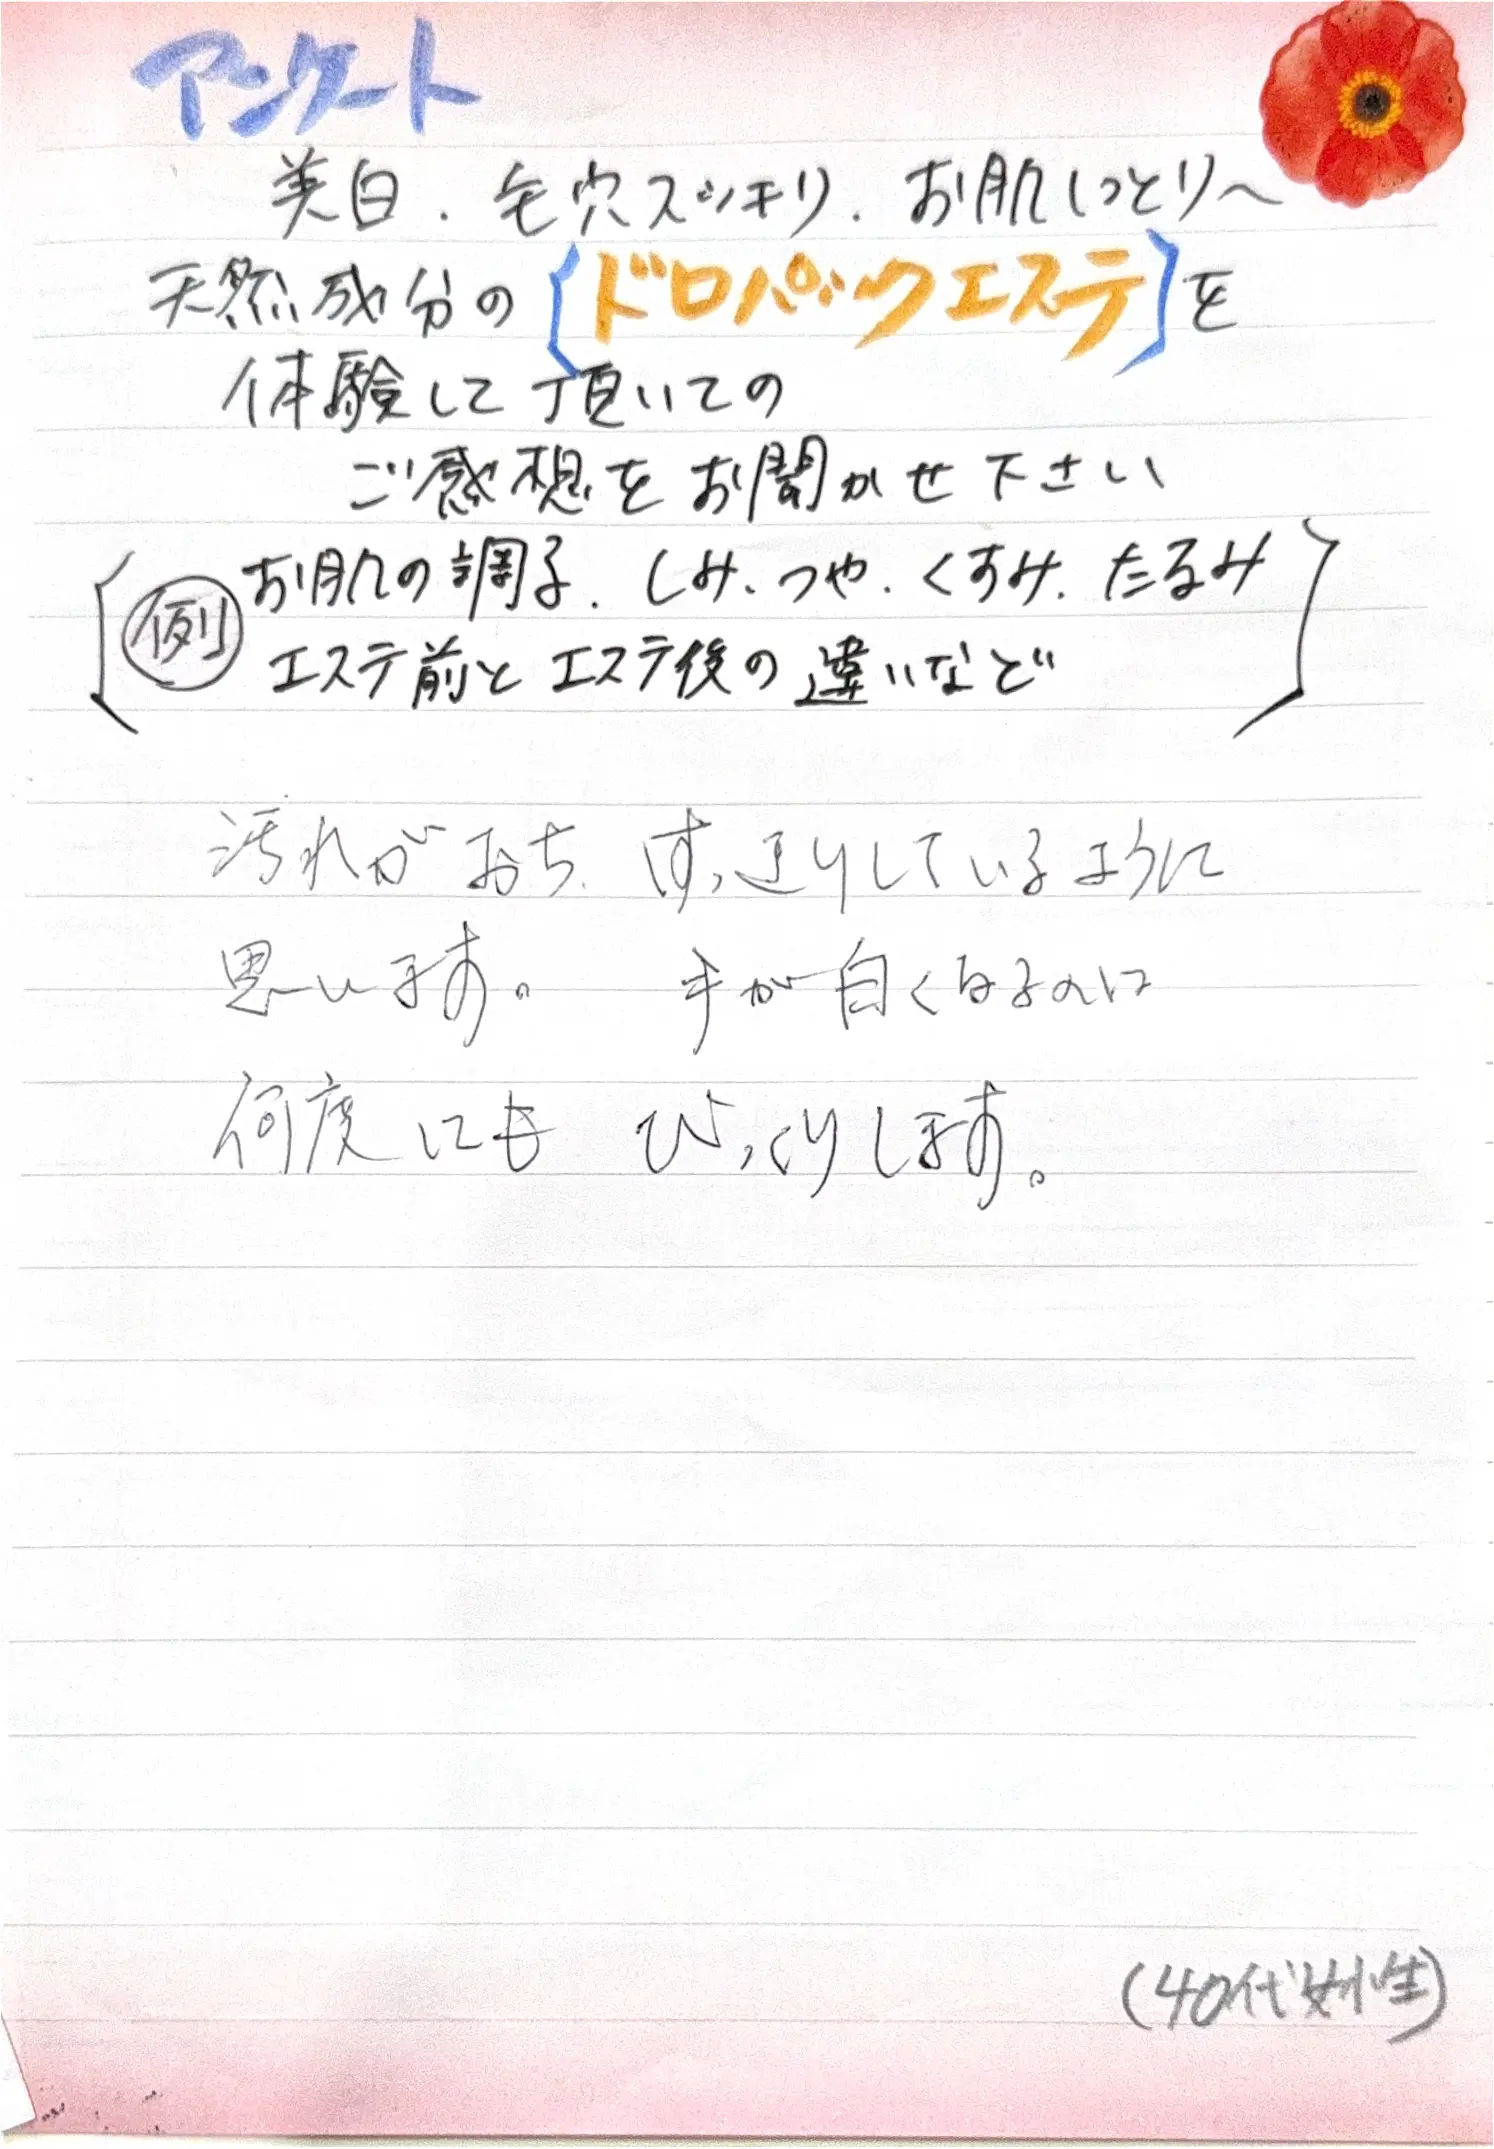 アンケート
美白.毛穴スッキリ.お肌しっとりへ
天然成分の[ドロパックエステ]を
体験して頂いての
ご感想をお聞かせ下さい
例 お肌の調子.しみ、つや.くすみ.たるみ
エステ前とエステ後の違いなど
汚れがおち、すっきりしているように
思います。 手が白くなるのに
何度にも びっくりします。
(40代女性)